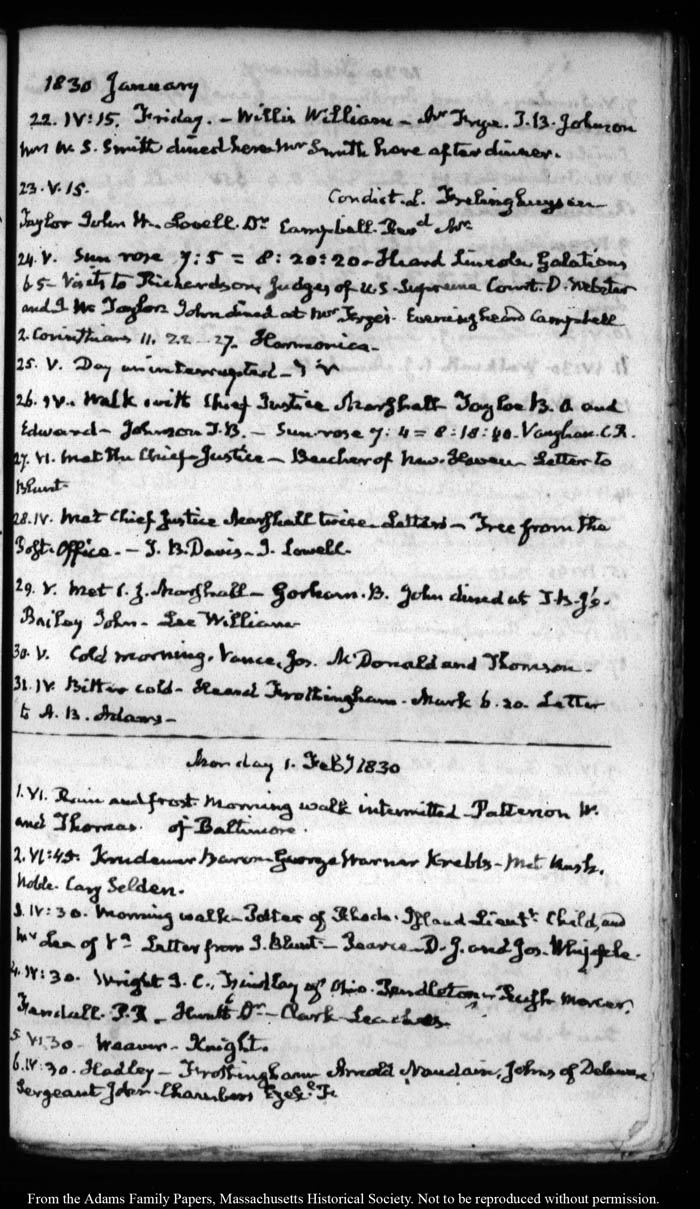 1830 January
22. IV:15. Friday. - Willis William - Mr Frye. T. B. Johnson
Mrs W. S. Smith dined here Mr Smith here after dinner.
23. V. 15. Condict. L. Frelinghuysen
Taylor John W. Lovell. Dr Campbell. Revd Mr
24. V. Sun rose 7:5 = 8:20:20 - Heard Lincoln Galations
6 5 - Visits to Richardson, Judges of U S. Supreme Court. D. Webster
and J W Taylor. John dined at Mr Frye's. Evening heard Campbell
2. Corinthians 11. 22 27. Harmonica -
25. V. Day uninterrupted -
26. IV. Walk with Chief Justice Marshall Tayloe B. O and
Edward - Johnson T. B. - Sun rose 7:4 = 8:18:40. Vaughan. C. R.
27. VI. Met the Chief-Justice - Beecher of New-Haven Letter to
Blunt
28. IV. Met Chief Justice Marshall twice. Letters - Free from the
Post-Office. - J. B. Davis - J. Lowell.
29. V. Met C. J. Marshall - Gorham. B. John dined at T. B. J's.
Bailey John - Lee William
30. V. Cold morning. Vance, Jos. McDonald and Thomson.
31. IV. Bitter cold - Heard Frothingham. Mark 6. 20. Letter
to A. B. Adams -
Monday 1. Feby 1830
1. VI. Rain and frost Morning walk intermitted - Patterson W.
and Thomas. of Baltimore.
2. VI:45. Krudener Baron - George Warner Krebbs - Met Rush.
Noble. Cary Selden.
3. IV:30. Morning walk - Potter of Rhode-Island Lieutt Child, and
Mr Lea of Letter from J. Blunt - Pearce - D. J. and Jos. Whipple.
4. IV:30. Wright J. C., Findlay of Ohio. Pendleton - Leigh Mercer,
Kendall. Hunt Dr - Clark Leaches
5. VI:30 - Weaver - Knight.
6. IV:30. Hadley - Frothingham Arnold Naudain, Johns of Delaware
Sergeant John - Chambers Ezekl F.
From the Adams Family Papers, Massachusetts Historical Society. Not to be reproduced without permission.